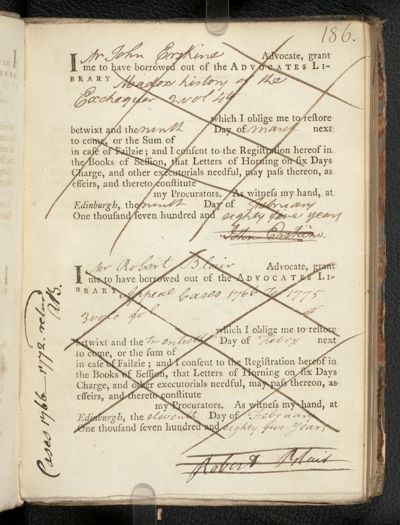 186.
I Mr John Erskine Advocate, grant
me to have borrowed out of the ADVOCATES LI-
BRARY Madox history of the
Exchequer 2 vol 4to
which I oblige me to restore
betwixt and the ninth Day of March next
to come, or the Sum of
in case of Failzie; and I consent to the Registration hereof in
the Books of Session, that Letters of Horning on six Days
Charge, and other executorials needful, may pass thereon, as
effeirs, and thereto constitute
my Procurators. As witness my hand, at
Edinburgh, the ninth Day of February
One thousand seven hundred and eighty five years
John Erskine.
I Mr Robert Blair Advocate, grant
me to have borrowed out of the ADVOCATES LI-
BRARY Appeal Cases 1766 to 1775
3 vols fol
which I oblige me to restore
betwixt and the Day of Febry next
to come, or the sum of
in case of Failzie; and I consent to the Registration hereof in
the Books of Session, that Letters of Horning on six Days
Charge, and other executorials needful, may pass thereon, as
effeirs, and thereto constitute
my Procurators. As witness my hand, at
Edinburgh, the eleventh Day of February
One thousand seven hundred and eighty five years
Robert Blair
Cases 1766—1772. retnd
RB.